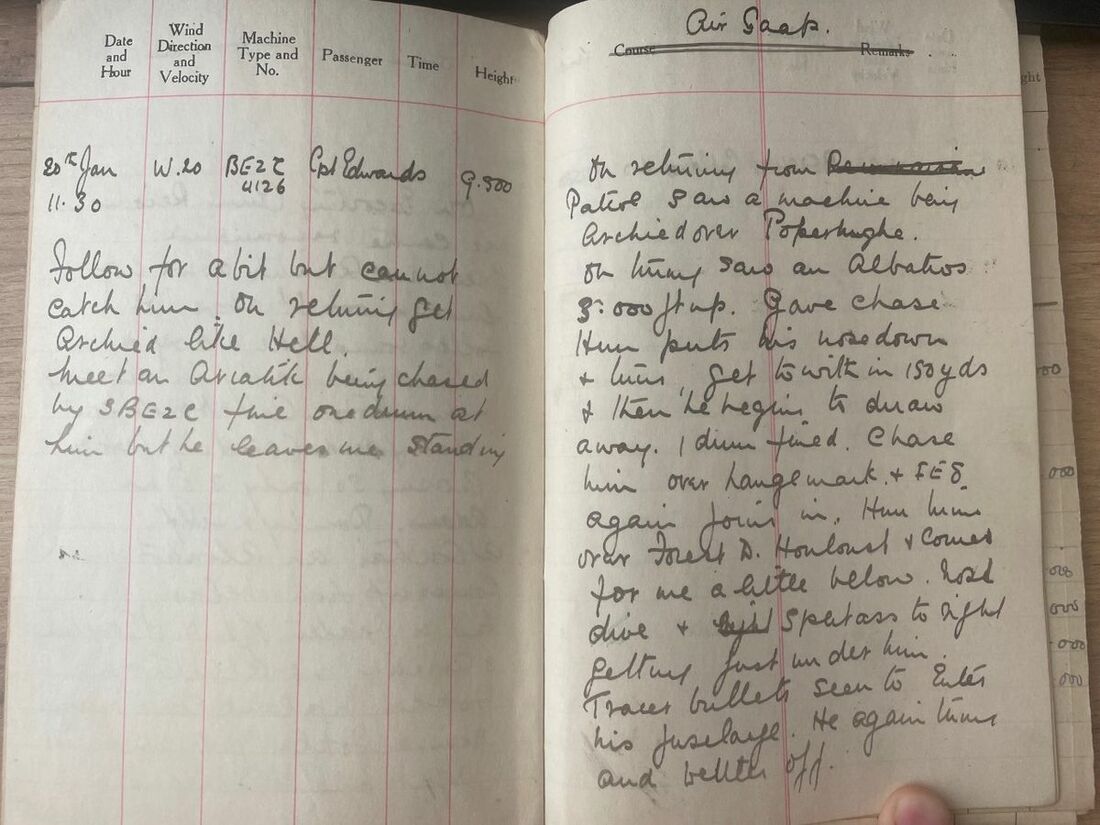 Date and Hour
Wind Direction and Velocity
Machine Type and No.
Passenger
Time
Height
20th Jan
11.30
W.20
BE2C
4126
Cpl Edwards
9.500
Follow for a bit but cannot
catch him. On returning get
Archied like Hell.
Meet an Aviatik being chased
by 3 BE2C fire one drum at
him but he leaves me standing
Air Scrap.
Course
Remarks
On returning from
Patrol saw a machine being
Archied over Poperhughe.
On turning saw an Albatros
3.000 ft up. Gave chase
Hun puts his nose down
& turns, get to with in 150 yds
& then he begins to draw
away. 1 drum fired. Chase
him over Langemark & FE8
again joins in. Hun turns
over Forest D. Houloust & comes
for me a little below. Nose
dive & Spletass to right
getting just under him.
Tracer bullets seen to Enter
his fuselage. He again turns
and bellts off.
ght
000
000
000
000
000